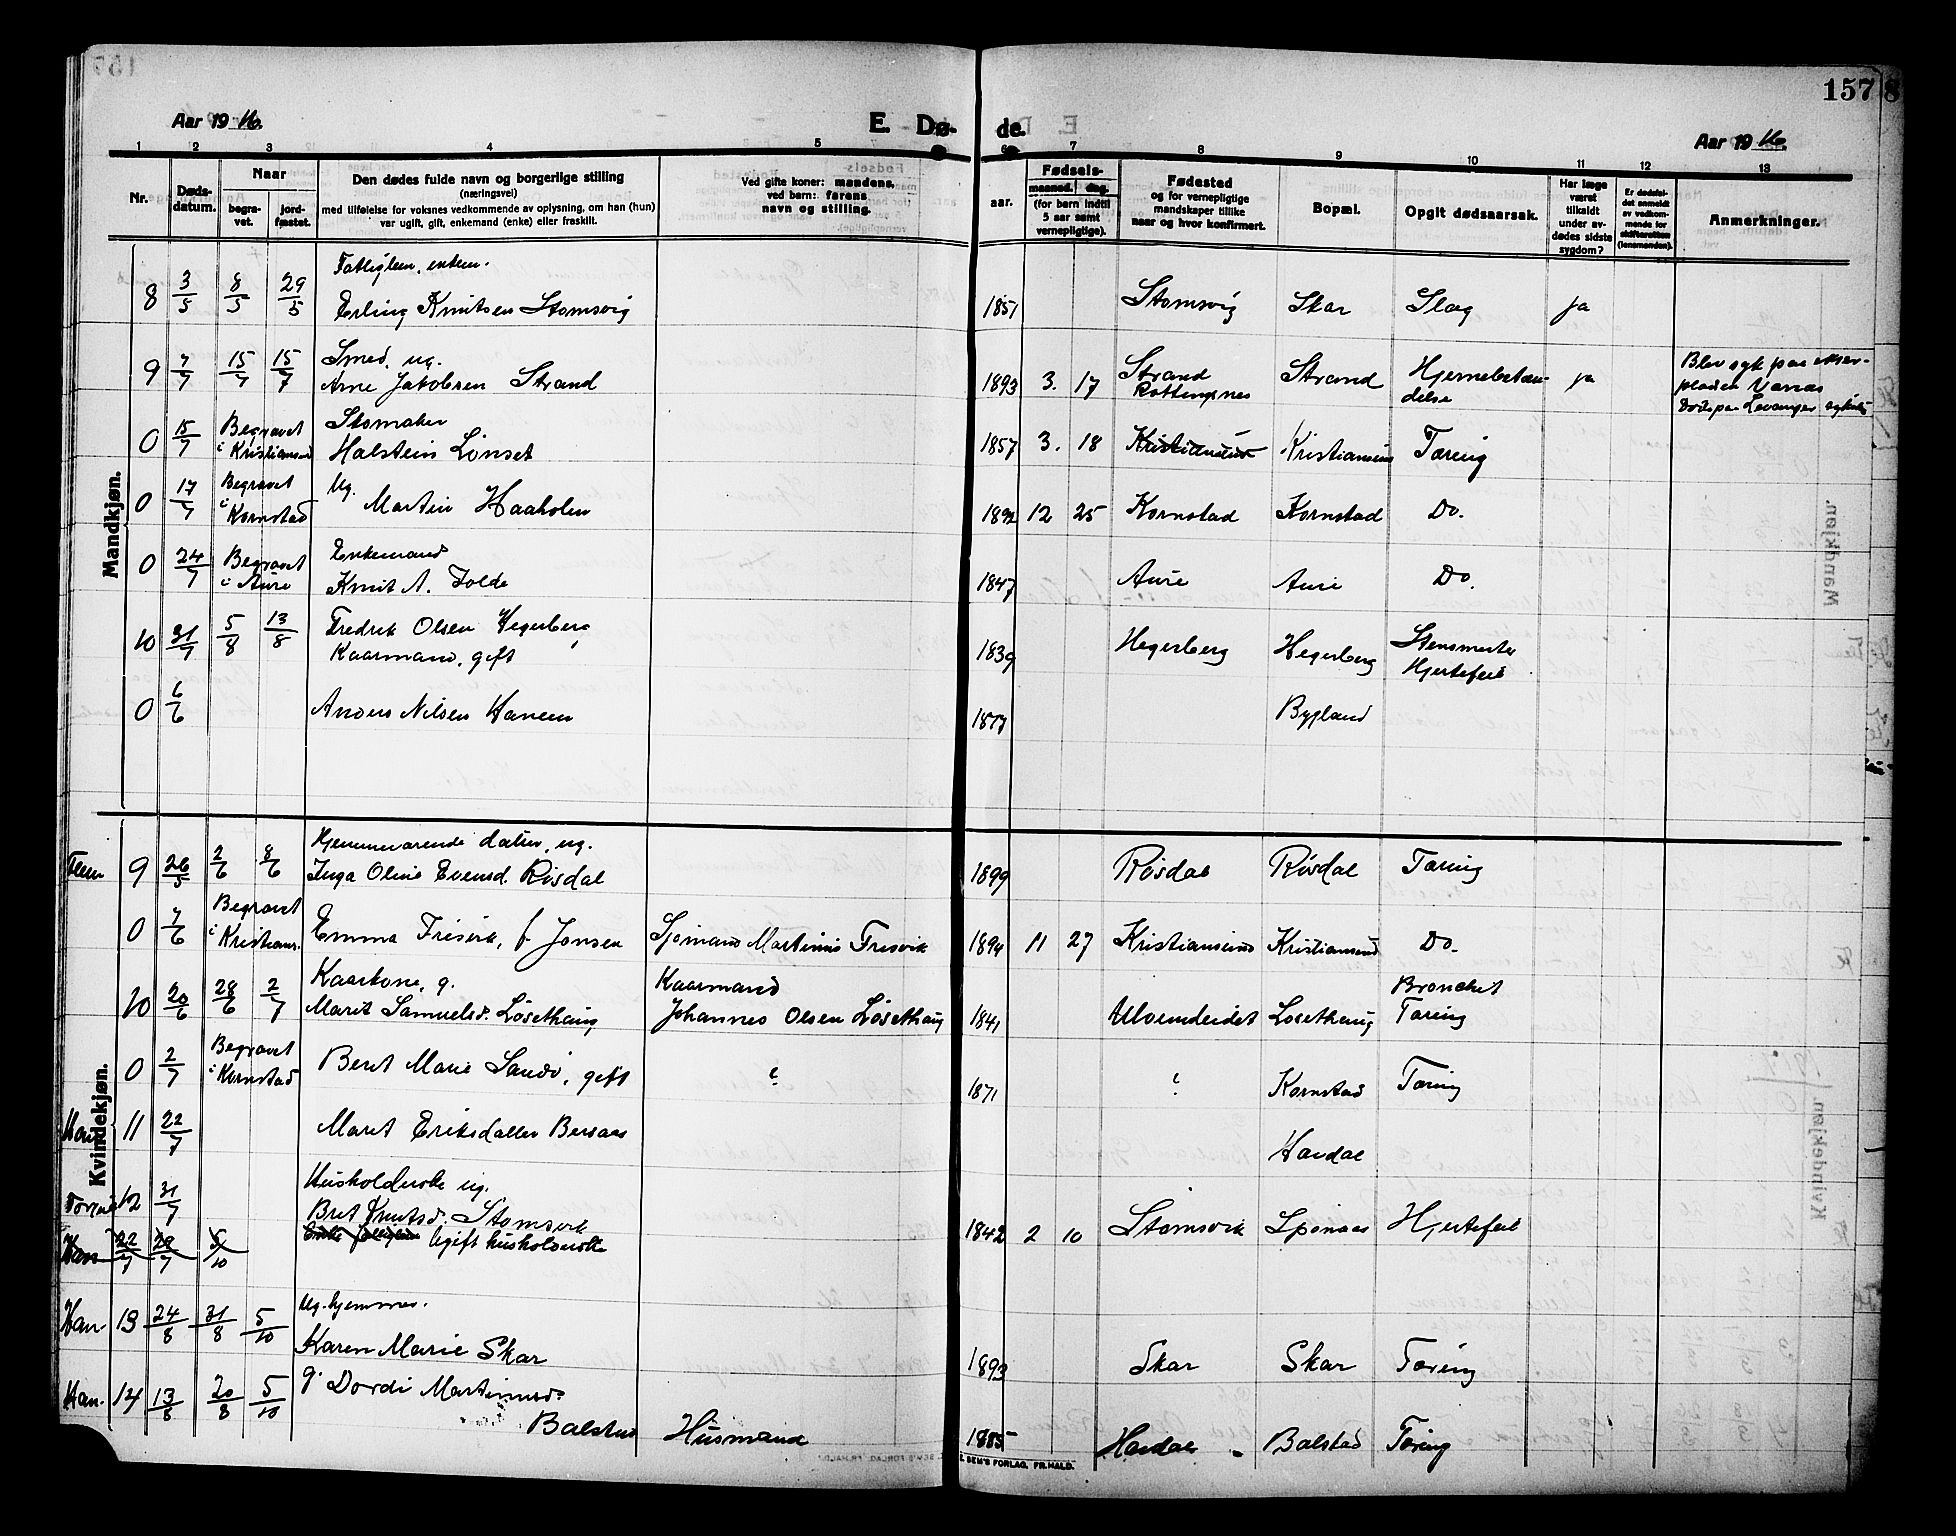 157
Aar 1916.
E. Dø- de.
Aar 1916.
1 2 3 4 5 6 7 8 9 10 11 12 13
Nr.
Døds-
datum.
Naar
begra-
vet.
jord-
fæstet.
Den dødes fulde navn og borgerlige stilling
(næringsvei)
med tilføielse for voksnes vedkommende av oplysning, om han (hun)
var ugift, gift, enkemand (enke) eller fraskilt.
Ved gifte koner: mandens,
ved børn: farens
navn og stilling.
aar.
Fødsels-
maaned. dag.
(for børn indtil
5 aar samt
vernepligtige).
Fødested
og for vernepligtige
mandskaper tillike
naar og hvor konfirmert.
Bopæl.
Opgit dødsaarsak.
Har læge
været
tilkaldt
under av-
dødes sidste
sygdom?
Er dødsfal-
det anmeldt
av vedkom-
mende for
skifteretten
(lensmanden).
Anmerkninger.
Mandkjøn.
Fattiglem, enkem.
8 3/5 8/5 29/5 Erling Knutsen Stomsvig 1851 Stomsvig Skar Slag ja
Smed, ug.
9 7/7 15/7 15/7 Arne Jakobsen Strand 1893 3. 17 Strand Strand Hjernebetæn- ja Blev syk paa
Rottingsnes delse pladsen
Døde paa Levanger sykeh.
0 15/7 Begravet Skomaker
i Kristiansund Halstein Lønset 1857 3. 18 Kristiansund Kristiansund Tæring
0 17/7 Begravet Ug.
i Kornstad Martin Haaholm 1892 12 25 Kornstad Kornstad Do.
0 24/7 Begravet Enkemand
i Aure Knut A. Tolde 1847 Aure Aure Do.
10 31/7 5/8 13/8 Fredrik Olsen Hegerberg
Kaarmand, gift 1839 Hegerberg Hegerberg Stensmerter
Hjertefeil
0 6/6 Anders Nilsen Hanem 1877 Bygland
Kvindekjøn.
Hjemmeværende datter, ug.
9 26/5 2/6 8/6 Inga Oline Evensd. Røsdal 1899 Røsdal Røsdal Tæring
0 7/6 Begravet
i Kristians. Emma Fresvik, f. Jonsen Sjømand Martinus Fresvik 1894 11 27 Kristiansund Kristiansund Do.
Kaarkone, g. Kaarmand Bronchit
10 20/6 28/6 2/7 Marit Samuelsd. Løsethaug Johannes Olsen Løsethaug 1841 Ulvundeidet Løsethaug Tæring
0 2/7 Begravet
i Kornstad Beret Marie Sandø, gift ? 1871 ? Kornstad Tæring
11 22/7 Maret Eriksdatter Bersaas Handal
Husholderske ug.
12 31/7 Bret Knutsd. Stomsvik 1842 2 10 Stomsvik Hjertefeil
Han 22/7 29/7 5/10 Enke fattiglem Ugift husholderske
Ug. hjemmev.
Han- 13 24/8 31/8 5/10 Karen Marie Skar 1893 Skar Skar Tæring
Han- 14 13/8 20/8 5/10 g. Dordi Martinusd.
Balstad Husmand 1885 Handal Balstad Tæring
E. SEM'S FORLAG, FR.HALD.